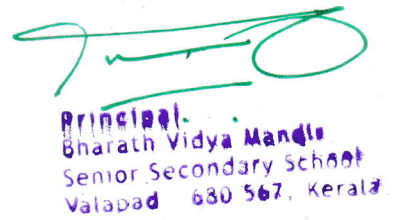 Principal.
Bharath Vidya Mandir
Senior Secondary School
Valapad 680 567, Kerala